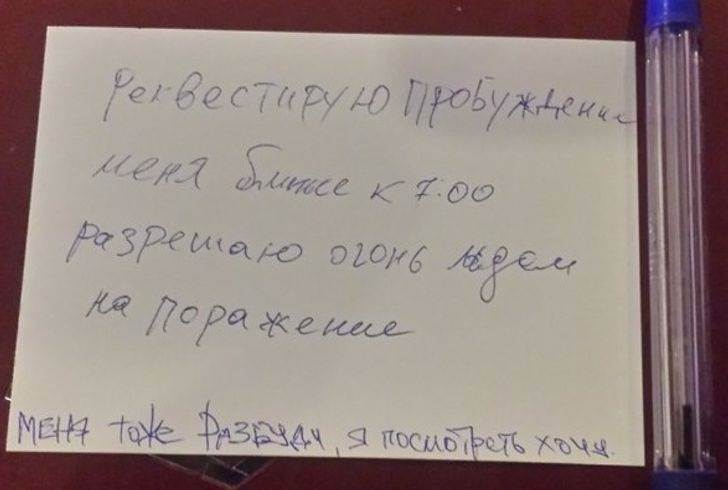 Реквестирую пробуждение
меня ближе к 7:00
разрешаю огонь
на поражение
МЕНЯ тоже РАЗБУДИ, я посмотреть хочу.